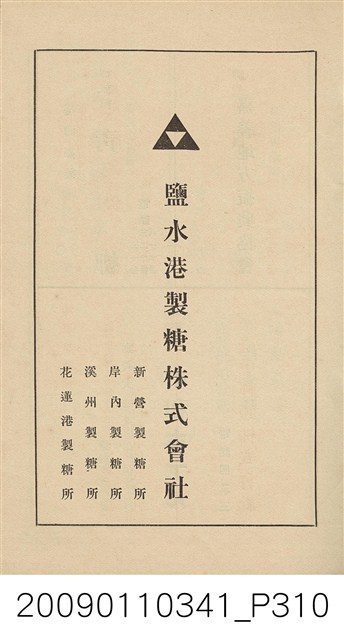 鹽水港製糖株式會社
新營製糖所
岸內製糖所
溪州製糖所
花蓮港製糖所
20090110341_P310